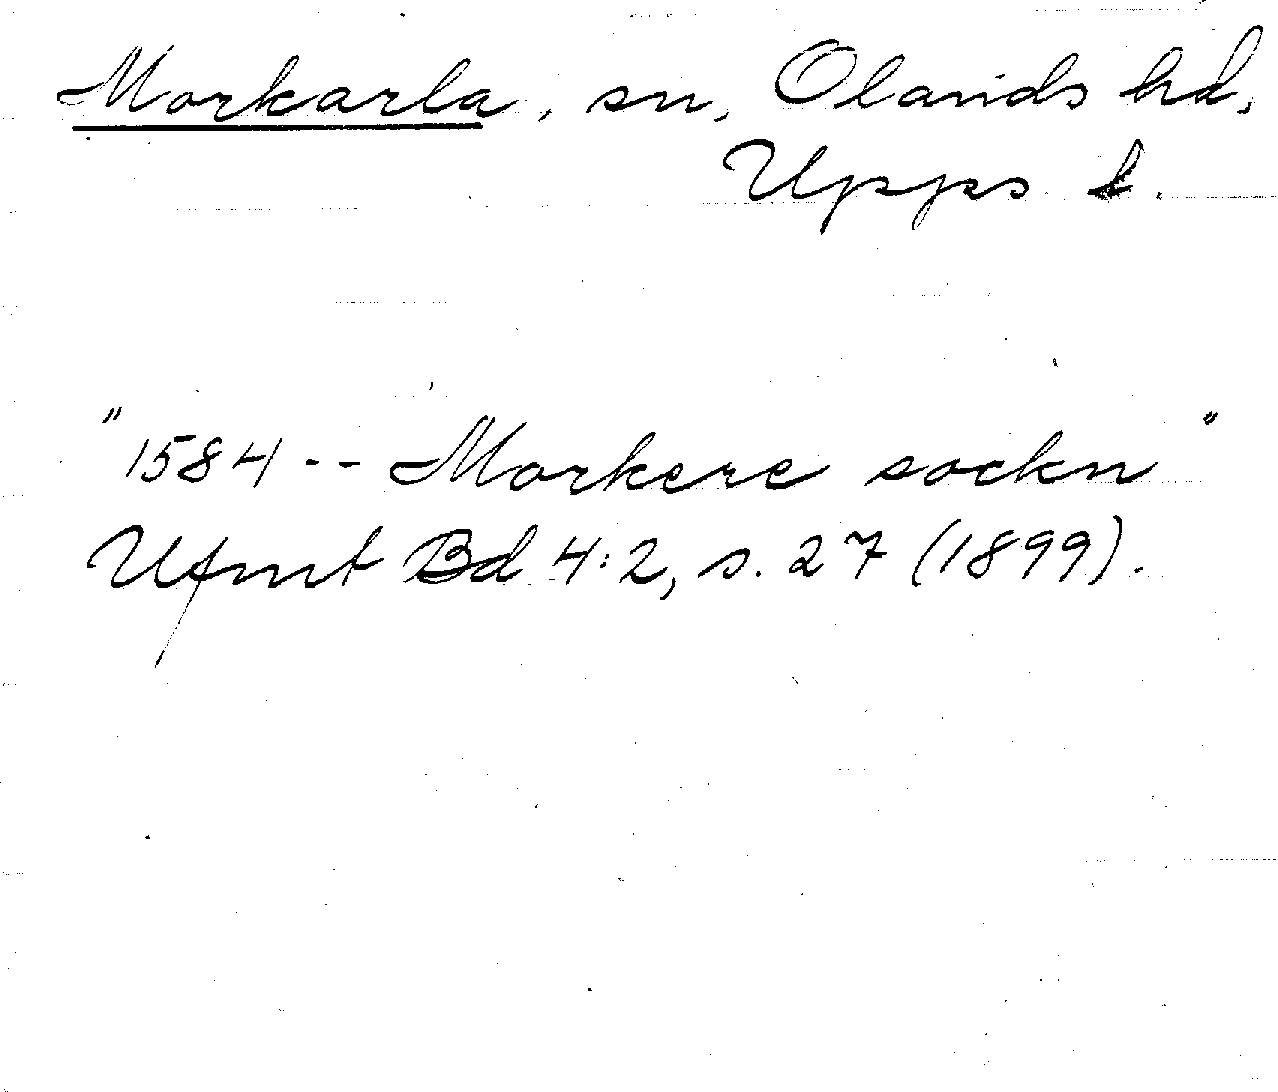 Morkarla, sn, Olands hd,
Upps l.
"1584 -- Morkere sockn"
Ufmt Bd 4:2, s. 27 (1899).